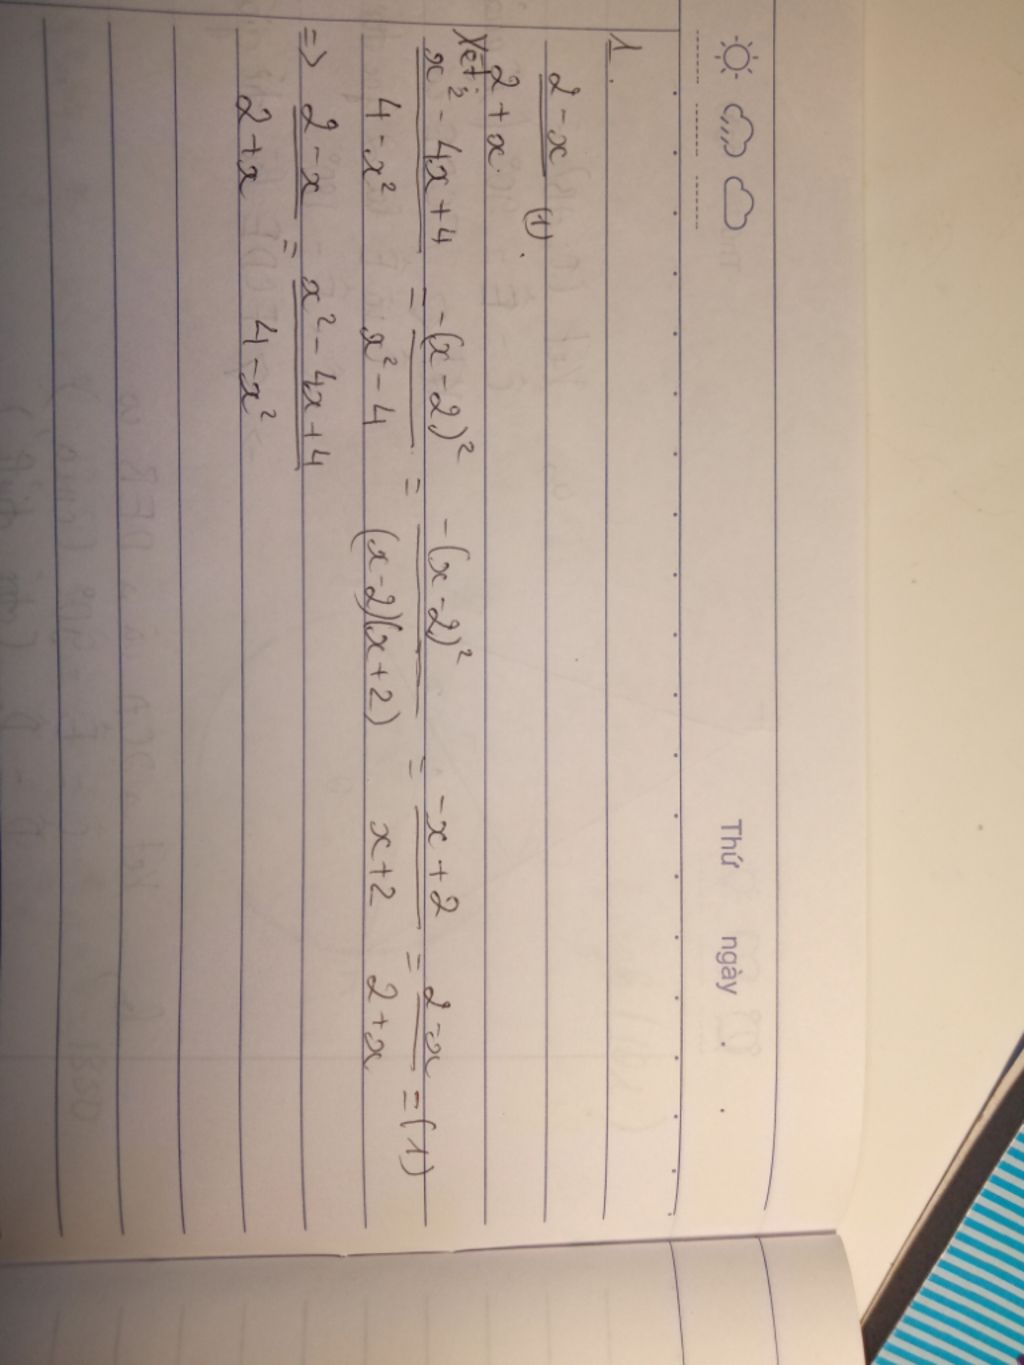 Thứ ngày
1.
2 - x / 2 + x (1).
Xét:
x² - 4x + 4 / 4 - x² = -(x - 2)² / x² - 4 = -(x - 2)² / (x - 2)(x + 2) = -x + 2 / x + 2 = 2 - x / 2 + x = (1)
=> 2 - x / 2 + x = x² - 4x + 4 / 4 - x²